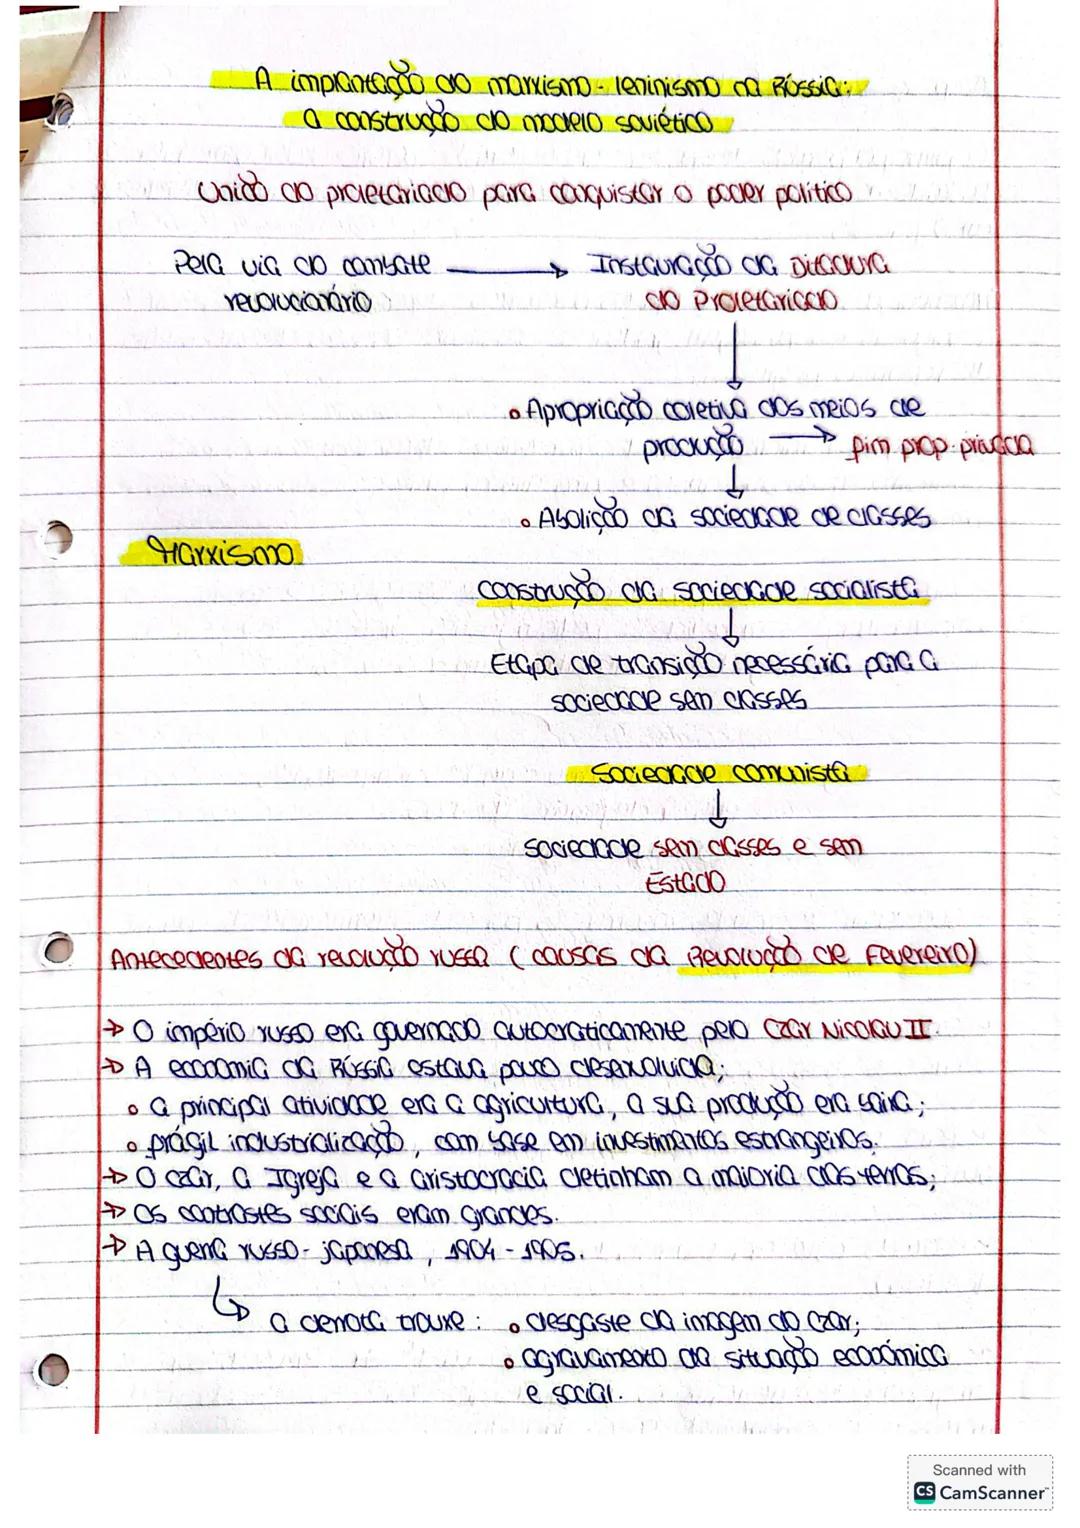 A implantação do marxismo-leninismo na Rússia:
a construção do modelo soviético
União do proletariado para conquistar o poder político
Pela via do combate → Instauração da Ditadura
revolucionário do Proletariado
• Apropriação coletiva dos meios de
produção → fim prop. privada
• Abolição da sociedade de classes
Marxismo
Construção da sociedade socialista
Etapa de transição necessária para a
sociedade sem classes
Sociedade comunista
Sociedade sem classes e sem
Estado
Antecedentes da revolução russa (causas da Revolução de Fevereiro)
→ O império russo era governado autocraticamente pelo Czar Nicolau II.
→ A economia da Rússia estava pouco desenvolvida;
• a principal atividade era a agricultura, a sua produção era baixa;
• frágil industrialização, com base em investimentos estrangeiros.
→ O czar, a Igreja e a aristocracia detinham a maioria das terras;
→ Os contrastes sociais eram grandes.
→ A guerra russo-japonesa, 1904-1905.
a derrota trouxe: • desgaste da imagem do Czar;
• agravamento da situação económica
e social.
Scanned with
CS CamScanner